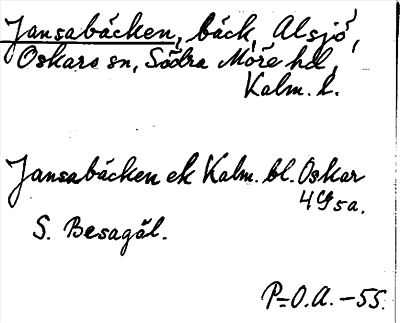 Jansabäcken, bäck, Alsjö,
Oskars sn, Södra Möre hd,
Kalm. l.
Jansabäcken ek Kalm. bl. Oskar
4G5a.
S. Besagöl.
P-O.A. -55.